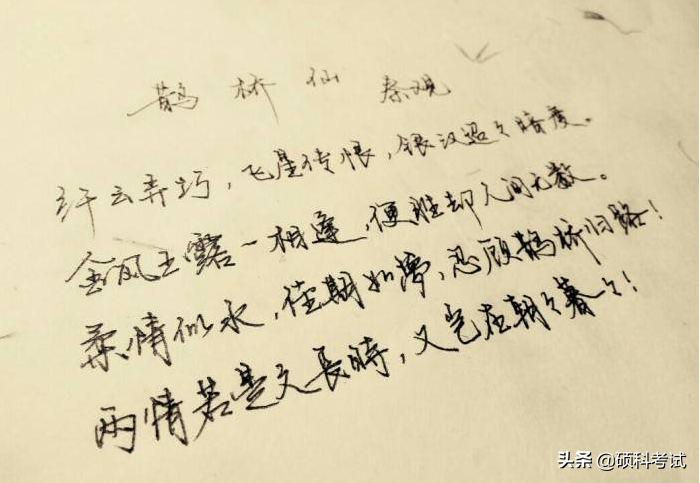 鹊桥仙 秦观
纤云弄巧,飞星传恨,银汉迢々暗度。
金风玉露一相逢,便胜却人间无数。
柔情似水,佳期如夢,忍顾鹊桥归路!
两情若是久長時,又岂在朝々暮々!
头条 @硕科考试